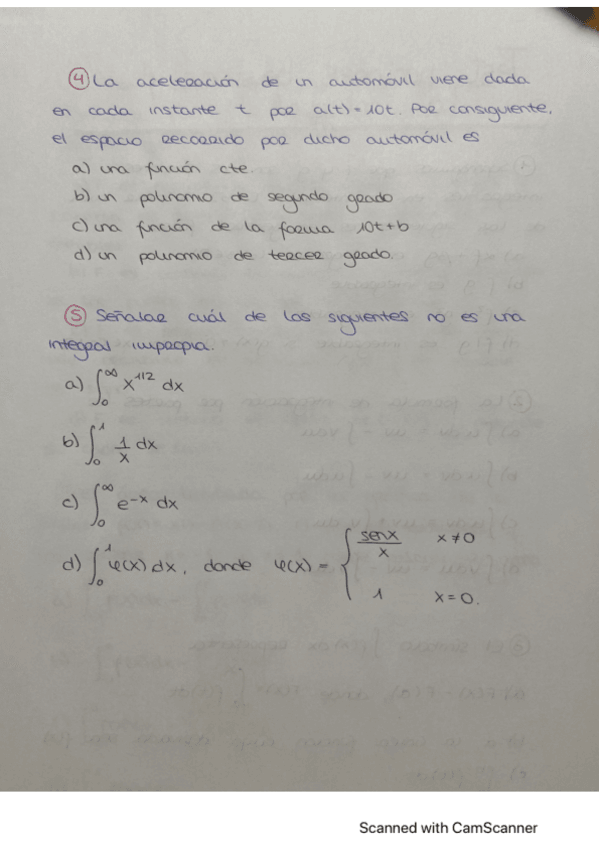 ④ La aceleración de un automóvil viene dada
en cada instante t por a(t)=10t. Por consiguiente,
el espacio recorrido por dicho automóvil es
a) una función cte.
b) un polinomio de segundo grado
c) una función de la forma 10t+b
d) un polinomio de tercer grado.
⑤ Señalar cuál de las siguientes no es una
integral impropia.
a) ∫₀^∞ x^1/2 dx
b) ∫₀^1 1/x dx
c) ∫₀^∞ e^-x dx
d) ∫₀^1 φ(x) dx, donde φ(x) = { senx/x x≠0
1 x=0.
Scanned with CamScanner